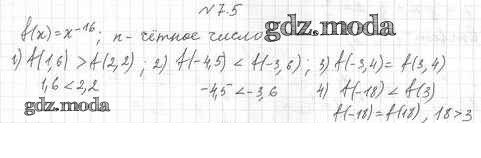 № 7.5
f(x) = x⁻¹⁶; n - чётное число gdz.moda
1) f(1,6) > f(2,2); 2) f(-4,5) < f(-3,6); 3) f(-3,4) = f(3,4)
1,6 < 2,2 -4,5 < -3,6 4) f(-18) < f(3)
gdz.moda f(-18) = f(18), 18 > 3